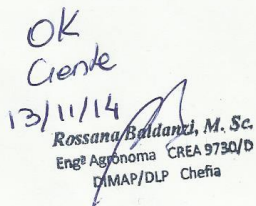 OK
Ciente
13/11/14
Rossana Baldanzi, M. Sc.
Engª Agrônoma CREA 9730/D
DIMAP/DLP Chefia